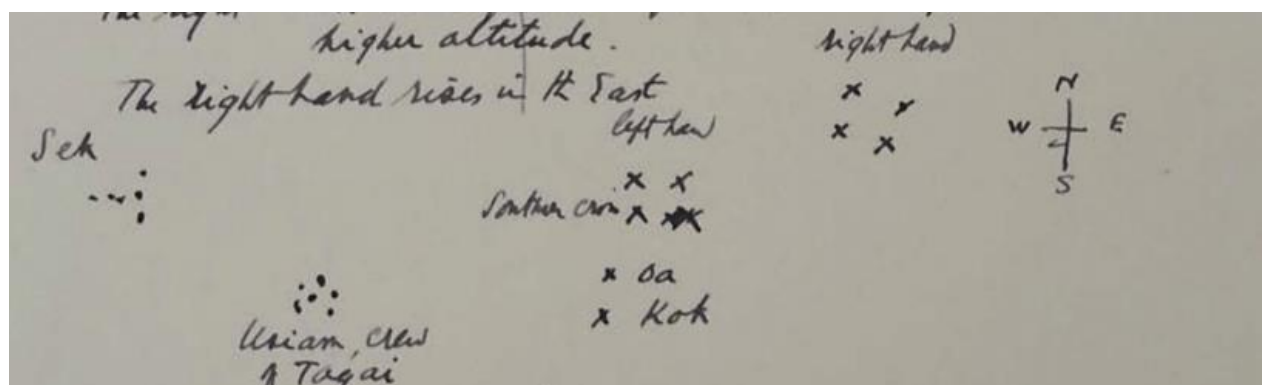 The right
higher altitude.
right hand
The right hand rises in th East
left han
N
W E
S
Sek
Southern
Oa
Kok
Usiam, crew
of Tagai